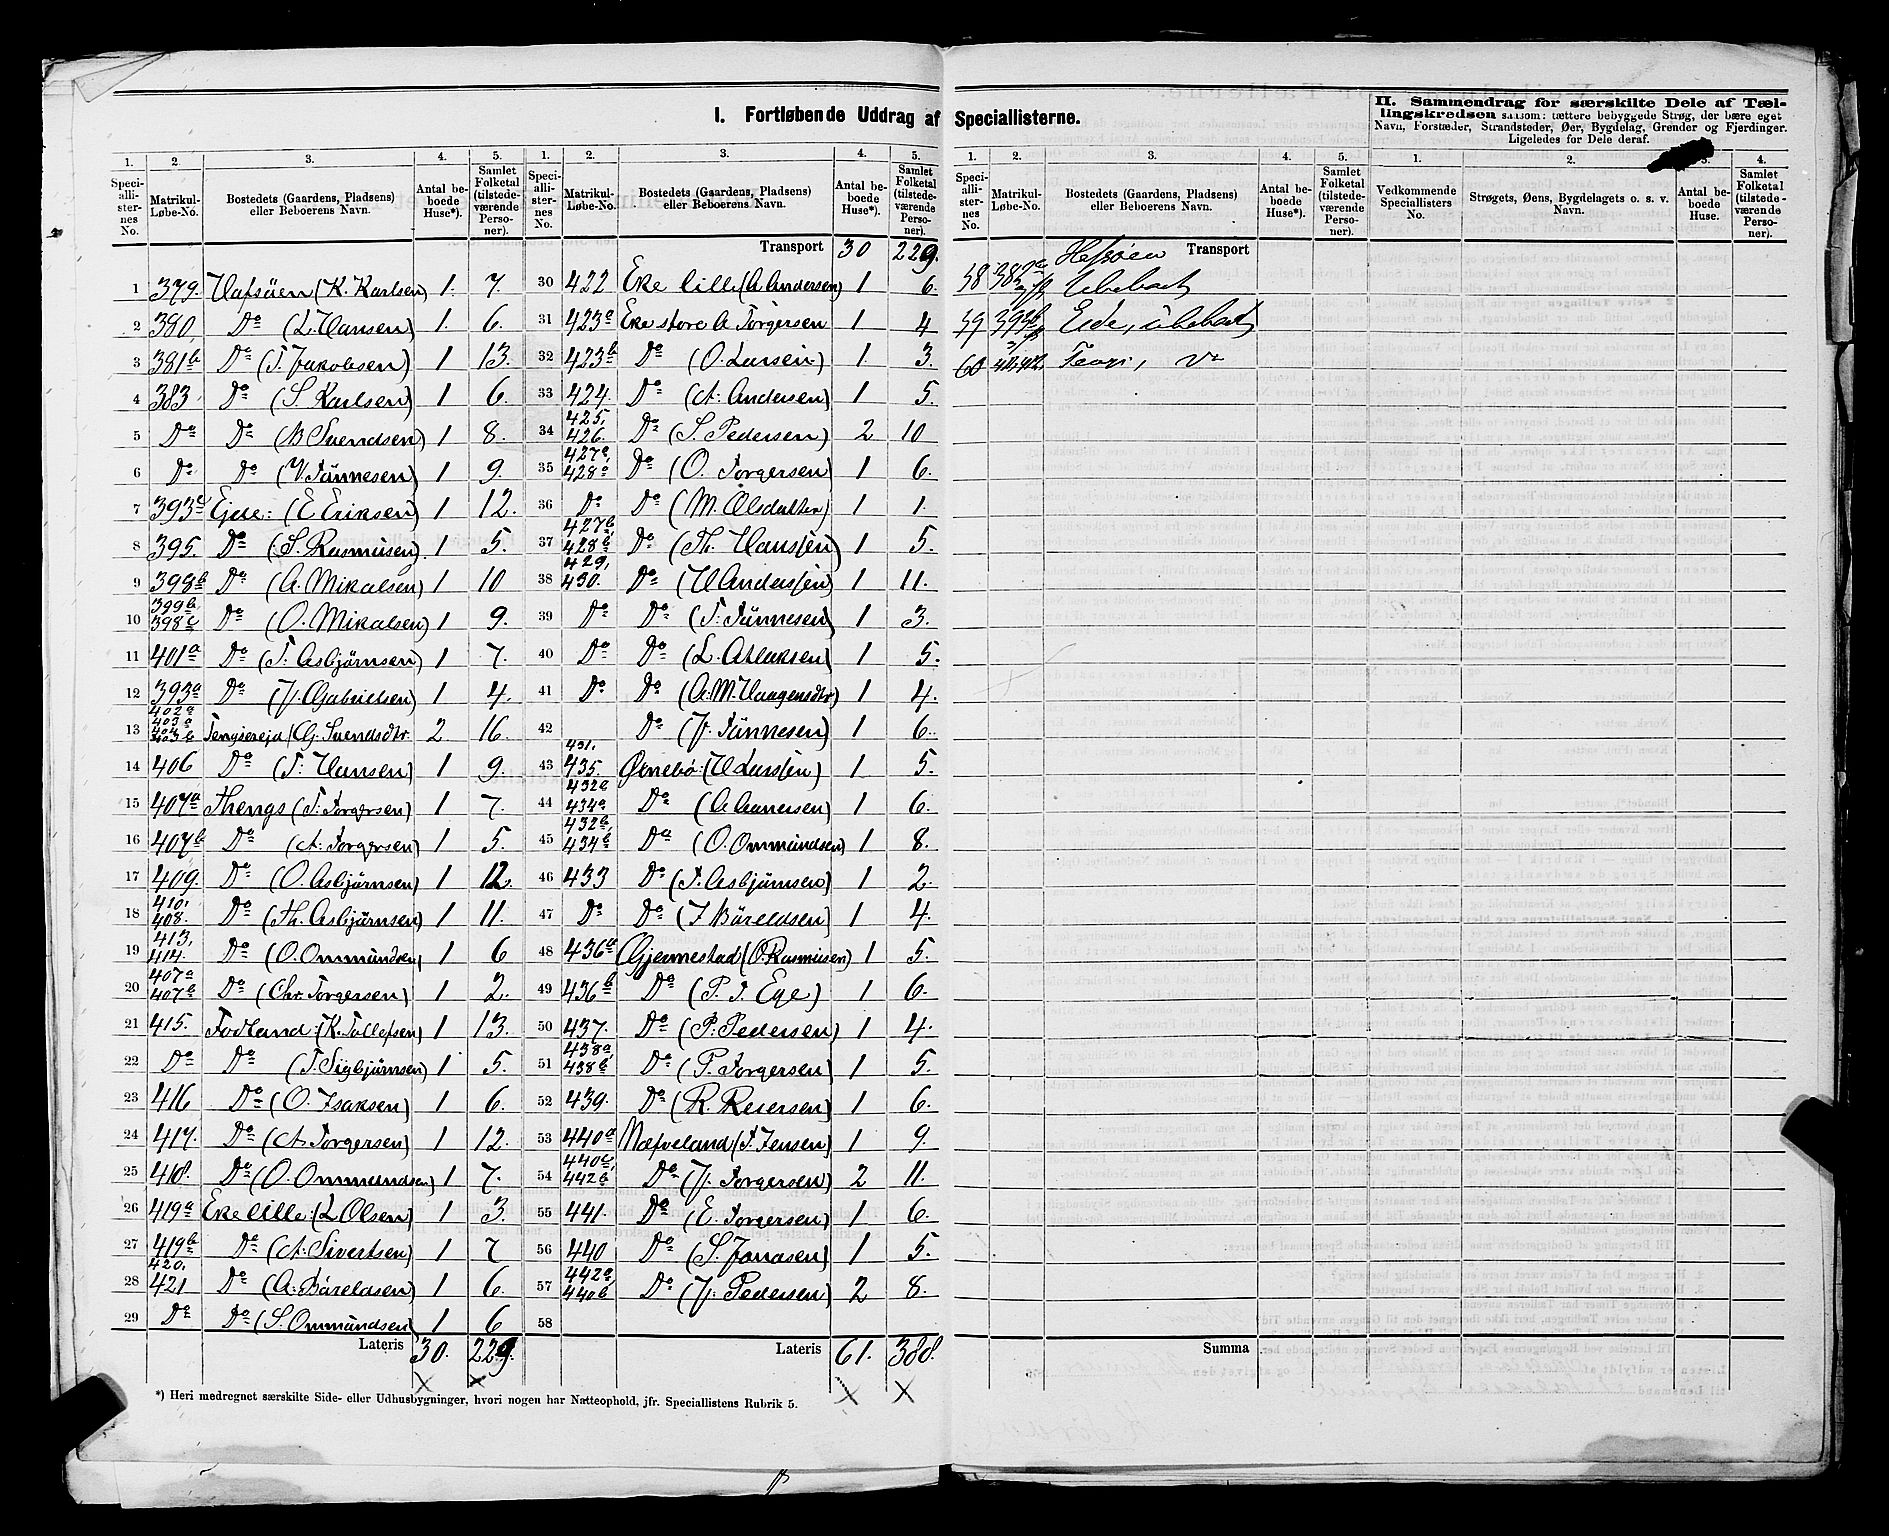 I. Fortløbende Uddrag af Speciallisterne.
II. Sammendrag for særskilte Dele af Tællingskredsen saasom: tættere bebyggede Strøg, der bære eget
Navn, Forstæder, Strandsteder, Øer, Bygdelag, Grender og Fjerdinger.
Ligeledes for Dele deraf.
1. 2. 3. 4. 5. 1. 2. 3. 4. 5.
Speciallisternes No. Matrikul-Løbe-No. Bostedets (Gaardens, Pladsens) eller Beboerens Navn. Antal beboede Huse*). Samlet Folketal (tilstedeværende Personer).
Speciallisternes No. Matrikul-Løbe-No. Bostedets (Gaardens, Pladsens) eller Beboerens Navn. Antal beboede Huse*). Samlet Folketal (tilstedeværende Personer).
1 379. Hafsöen (K. Karlsen) 1. 7.
2 380, Do (L. Hansen) 1. 6.
3 381b Do (T. Jakobsen) 1 13.
4 383 Do (S. Karlsen) 1 6.
5 Do Do (B Svendsen) 1 8.
6 Do Do (V. Tönnesen) 1 9.
7 393c Ejde: (E Eriksen) 1 12.
8 395. Do (S. Rasmusen) 1 5.
9 398b Do (A. Mikalsen) 1 10
10 399b, 398c Do (O. Mikalsen) 1 9.
11 401a Do (T. Asbjörnsen) 1 7.
12 393a Do (J. Gabrielsen) 1 4.
13 402a 403a 403b (G. Svendsdtr. 2 16.
14 406 Do (T. Hansen) 1 9.
15 407a Thengs (T. Torgersen) 1 7.
16 407b Do (A. Torgersen) 1 5.
17 409. Do (O. Asbjörnsen) 1 12.
18 410, 408. Do (Th. Asbjörnsen) 1 11.
19 413, 414. Do (O. Ommundsen) 1 6
20 407a 407b Do (Chr. Torgersen) 1 2.
21 415. Fodland: (K. Tollefsen) 1 13.
22 Do Do (T. Sigbjörnsen) 1 5.
23 416 Do (O. Isaksen) 1 6.
24 417. Do (A. Torgersen) 1 12.
25 418. Do (O. Ommundsen) 1 7.
26 419a Eke lille: (L Olsen) 1 3.
27 419b Do (A. Sivertsen) 1 7
28 420, 421 Do (A. Bäreldsen) 1 6.
29 Do Do (S. Ommundsen) 1 6
Lateris 30. 229.
Transport 30 229.
30 422 Eke lille (A Andersen) 1 6.
31 423a Eke store A Torgersen 1 4
32 423b Do (O. Larsen) 1. 3.
33 424. Do (A. Andersen) 1 5.
34 425, 426. Do (S. Pedersen) 2 10
35 427a, 428a Do (O. Torgersen) 1 6.
36 Do Do (M. Olsdatter) 1 1.
37 427b, 428b Do (Th. Hanssen) 1 5.
38 429, 430. Do (H Anderssen) 1 11.
39 Do Do (T. Tönnesen) 1 3.
40 Do Do (L. Atlaksen) 1 5.
41 Do Do (A. M. Haagensdtr) 1 4.
42 Do (J. Tönnesen) 1 6.
43 431. 435. Ørnebö: (H Larssen) 1. 5.
44 432a 434a Do (A Aanensen) 1 6.
45 432b, 434b Do (O. Ommundsen) 1 8.
46 433 Do (T. Asbjörnsen) 1 2.
47 Do Do (T Bäreldsen) 1 4.
48 436a Gjermestad (O. Rasmusen) 1 5.
49 436b Do (P. T. Ege) 1 6.
50 437. Do (P. Pedersen) 1 4.
51 438a, 438b Do (P. Torgersen) 1 5.
52 439. Do (R. Reiersen) 1 6.
53 440a Mæfveland (T. Jensen) 1 9.
54 440c, 442b Do (J. Torgersen) 2 11.
55 441. Do (E. Torgersen) 1 6.
56 440 Do (S. Jonasen) 1 5.
57 442a, 440b Do (J. Pedersen) 2 8.
58
Lateris 61. 388.
*) Heri medregnet særskilte Side- eller Udhusbygninger, hvori nogen har Natteophold, jfr. Speciallistens Rubrik 5.
1. 2. 3. 4. 5. 1. 2. 3. 4.
Speciallisternes No. Matrikul-Løbe-No. Bostedets (Gaardens, Pladsens) eller Beboerens Navn. Antal beboede Huse*). Samlet Folketal (tilstedeværende Personer).
Vedkommende Speciallisters No. Strøgets, Øens, Bygdelagets o. s. v. Navn. Antal beboede Huse. Samlet Folketal (tilstedeværende Personer).
Transport
58 Ubeboet
59 Eide, ubeboet
60
Summa